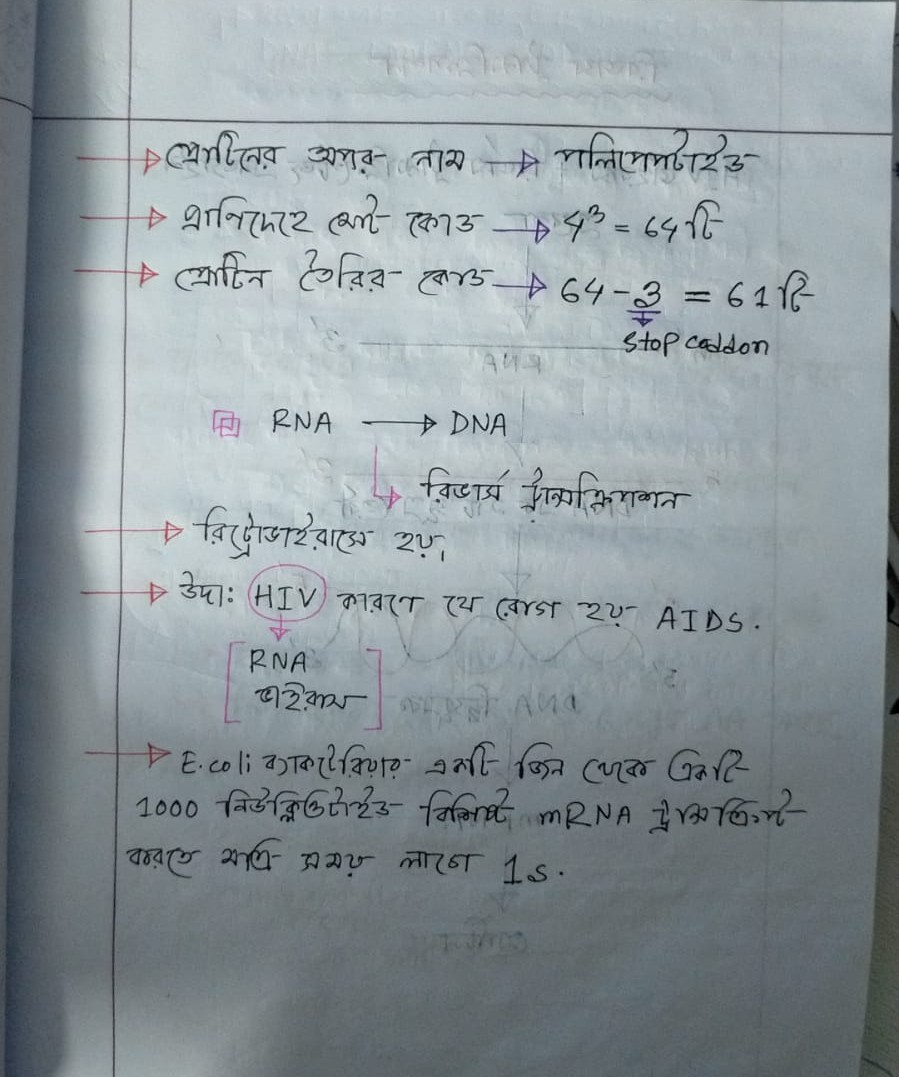 প্রোটিনের অপর নাম → পলিপেপটাইড
প্রানিদেহে মোট কোড → 4³ = 64 টি
প্রোটিন তৈরির কোড → 64 - 3 = 61 টি
Stop coddon
RNA → DNA
রিভার্স ট্রান্সক্রিপশন
রিট্রোভাইরাসে হয়,
উদা: HIV কারণে যে রোগ হয় AIDS.
RNA
ভাইরাস
E.coli ব্যাকটেরিয়ার একটি জিন থেকে একটি
1000 নিউক্লিওটাইড বিশিষ্ট mRNA ট্রান্সক্রিপ্ট
করতে মাত্র সময় লাগে 1s.